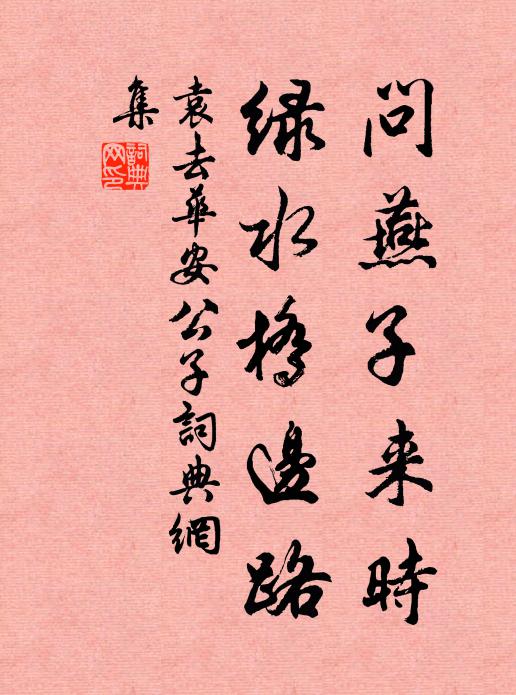 问燕子来時
緑水橋邊路
袁去華安公子詞典網
集
詞典網印